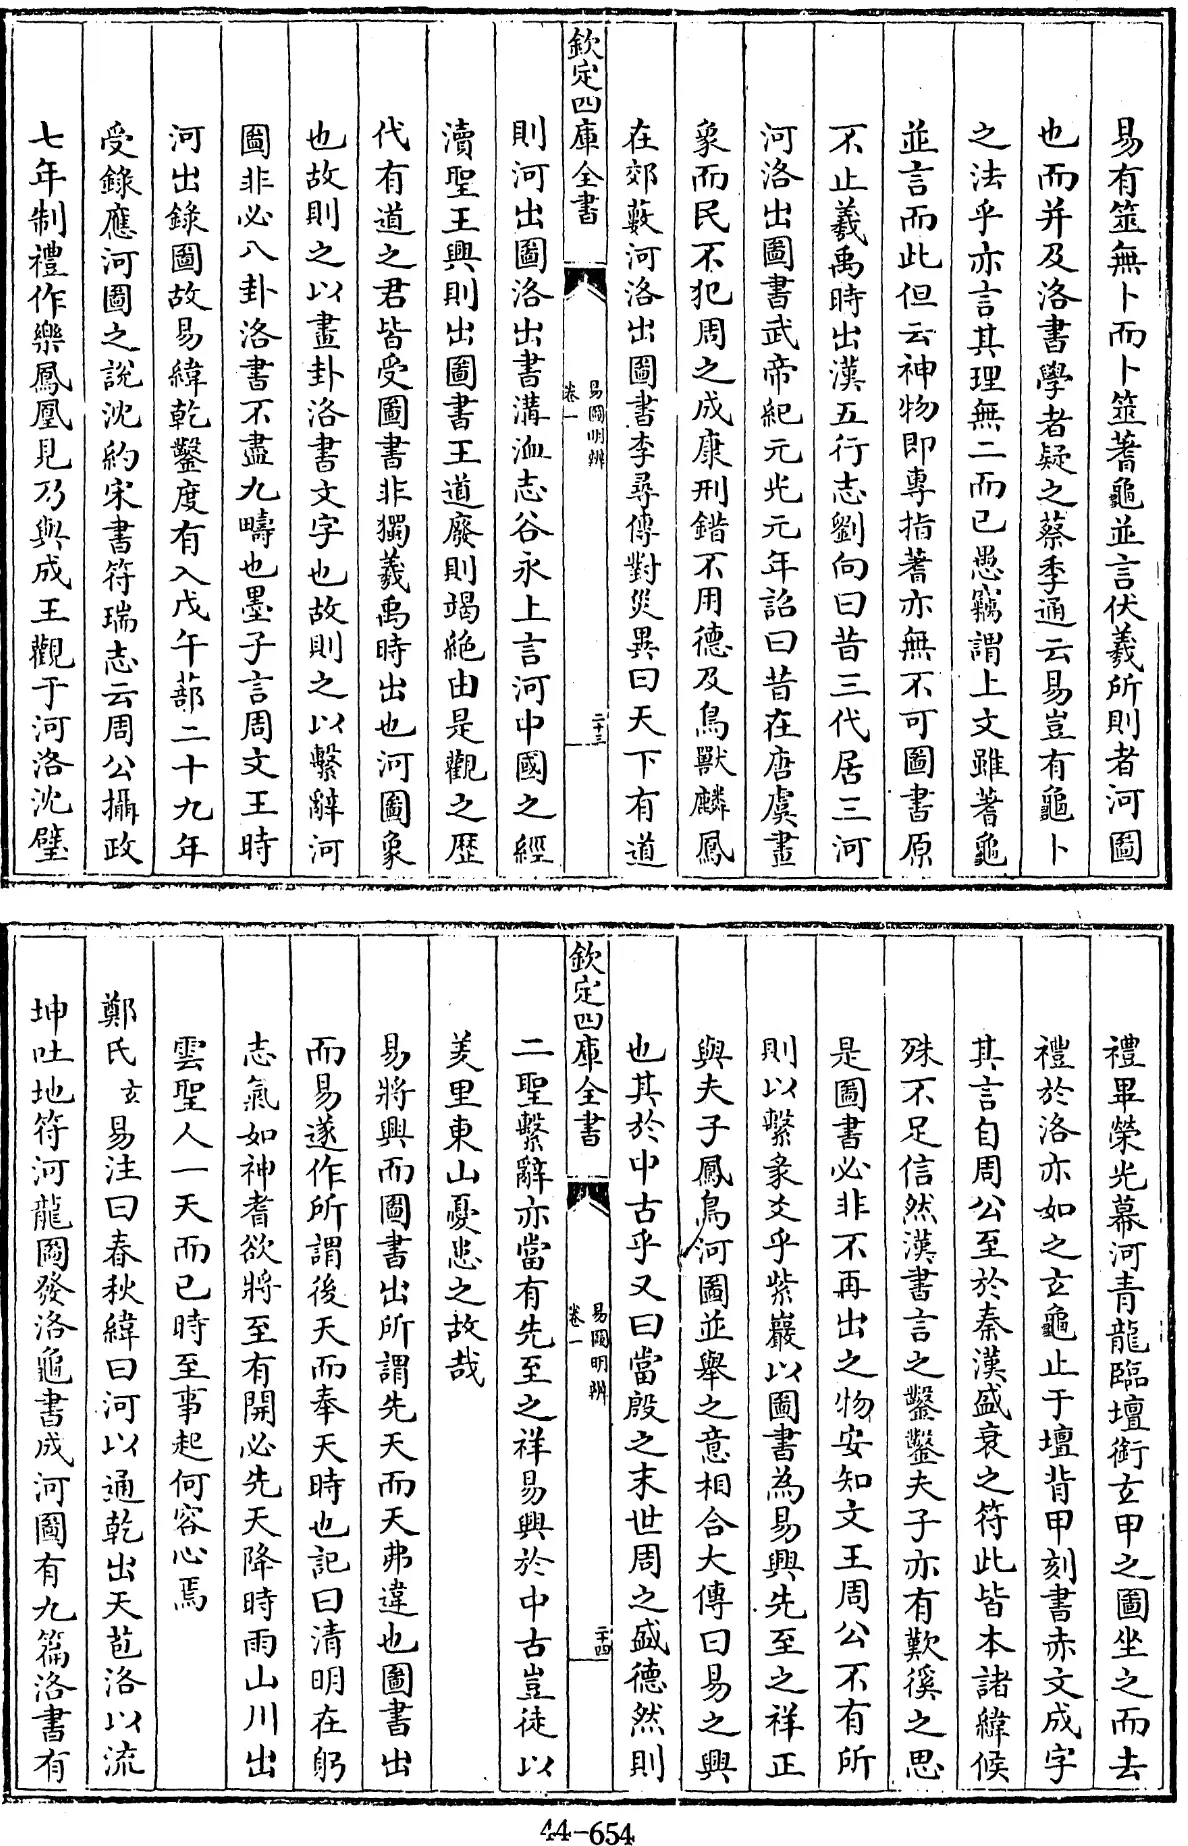 易有筮無卜而卜筮蓍龜並言伏羲所則者河圖
也而并及洛書學者疑之蔡季通云易豈有龜卜
之法乎亦言其理無二而已愚竊謂上文雖蓍龜
並言而此但云神物即專指蓍亦無不可圖書原
不止羲禹時出漢五行志劉向曰昔三代居三河
河洛出圖書武帝紀元光元年詔曰昔在唐虞畫
象而民不犯周之成康刑錯不用德及鳥獸麟鳳
在郊藪河洛出圖書李尋傳對災異曰天下有道
欽定四庫全書
易圖明辨
卷一
二十三
則河出圖洛出書溝洫志谷永上言河中國之經
瀆聖王興則出圖書王道廢則竭絶由是觀之歷
代有道之君皆受圖書非獨羲禹時出也河圖象
也故則之以畫卦洛書文字也故則之以繫辭河
圖非必八卦洛書不盡九疇也墨子言周文王時
河出錄圖故易緯乾鑿度有入戊午蔀二十九年
受錄應河圖之說沈約宋書符瑞志云周公攝政
七年制禮作樂鳳凰見乃與成王觀于河洛沈璧
禮畢榮光幕河青龍臨壇銜玄甲之圖坐之而去
禮於洛亦如之玄龜止于壇背甲刻書赤文成字
其言自周公至於秦漢盛衰之符此皆本諸緯候
殊不足信然漢書言之鑿鑿夫子亦有歎徯之思
是圖書必非不再出之物安知文王周公不有所
則以繫彖爻乎紫巖以圖書為易興先至之祥正
與夫子鳳鳥河圖並舉之意相合大傳曰易之興
也其於中古乎又曰當殷之末世周之盛德然則
欽定四庫全書
易圖明辨
卷一
二十四
二聖繫辭亦當有先至之祥易興於中古豈徒以
羑里東山憂患之故哉
易將興而圖書出所謂先天而天弗違也圖書出
而易遂作所謂後天而奉天時也記曰清明在躬
志氣如神耆欲將至有開必先天降時雨山川出
雲聖人一天而已時至事起何容心焉
鄭氏玄易注曰春秋緯曰河以通乾出天苞洛以流
坤吐地符河龍圖發洛龜書成河圖有九篇洛書有
44-654